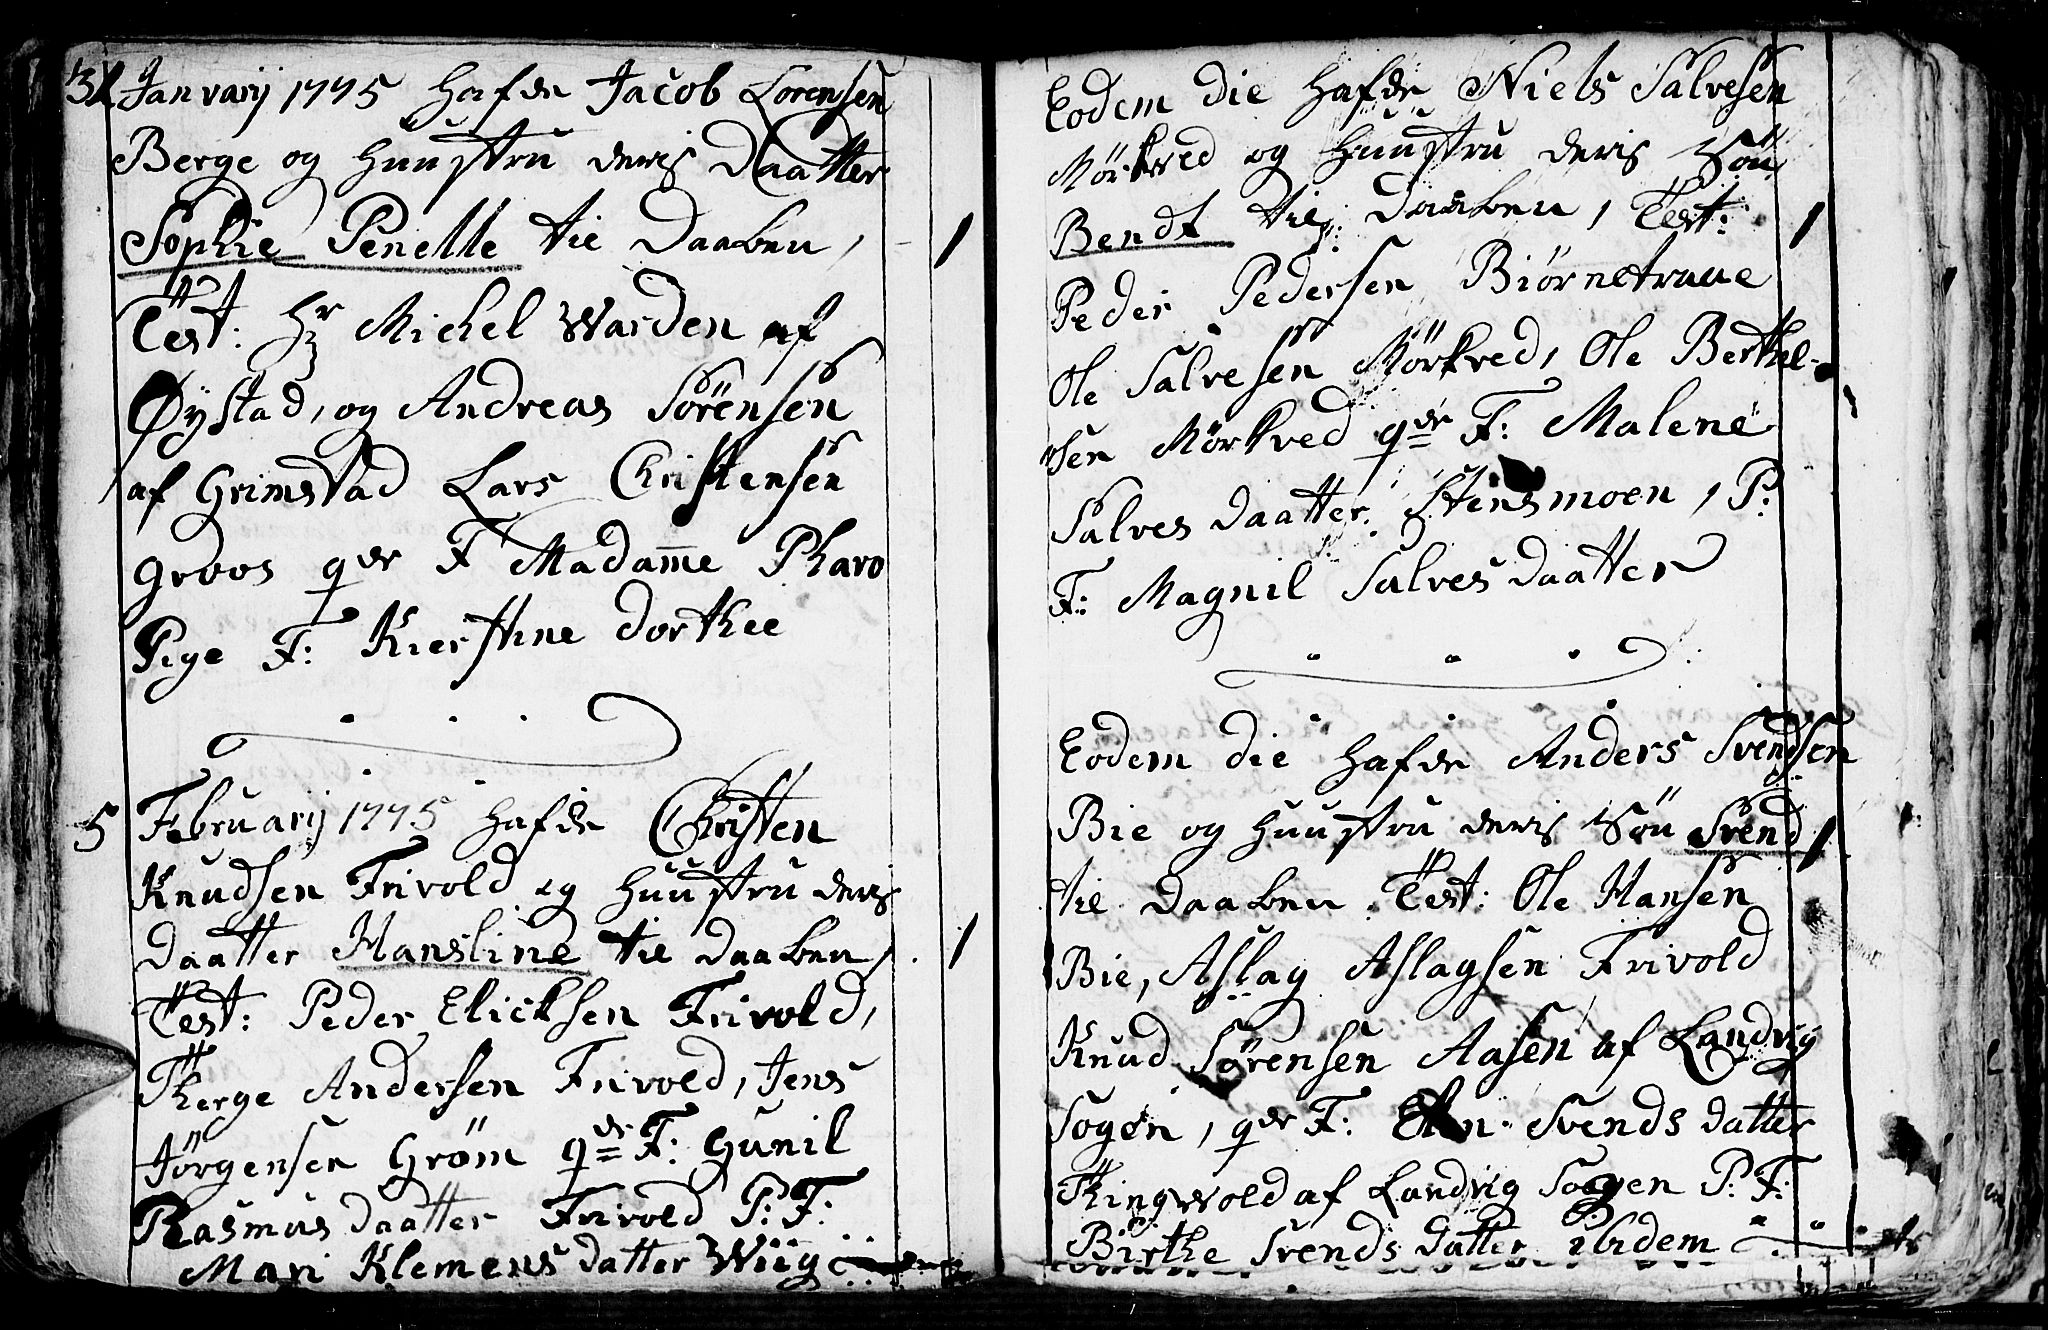 31 Januarij 1775 hafde Jacob Lorensen
Berge og Huustru deris Daatter
Sophie Penelle til Daaben, 1
Test: Hr Michel Warden af
Øystad, og Andreas Sörensen
af Grimstad Lars Christensen
Groos qvr F Madame Pharo
Pige F: Kierstine Dorthee
5 Februarij 1775 hafde Christen
Knudsen Frivold og Huustru deris
Daatter Hansline til Daaben, 1
Test: Peder Elicksen Frivold,
Therge Andersen Frivold, Jens
Jörgensen Gröm qvr F: Gunil
Rasmusdaatter Frivold P: F:
Mari Klemensdatter Wiig
Eodem die hafde Niels Salvesen
Mörkved og Huustru deris Sön
Bendt til Daaben, Test: 1
Peder Pedersen Biørnetraae
Ole Salvesen Mörkved, Ole Berthel-
sen Mörkved qvr F: Malene
Salvesdaatter Stensmoen, P:
F: Magnil Salvesdaatter
Eodem die hafde Anders Svendsen
Bie og Huustru deris Sön Svend 1
til Daaben Test: Ole Hansen
Bie, Aslag Aslagsen Frivold
Knud Sörensen Aasen af Landvig
Sogen, qvr F: Svendsdatter
Thingwold af Landvig Sogen P: F:
Birthe Svendsdatter ibidem